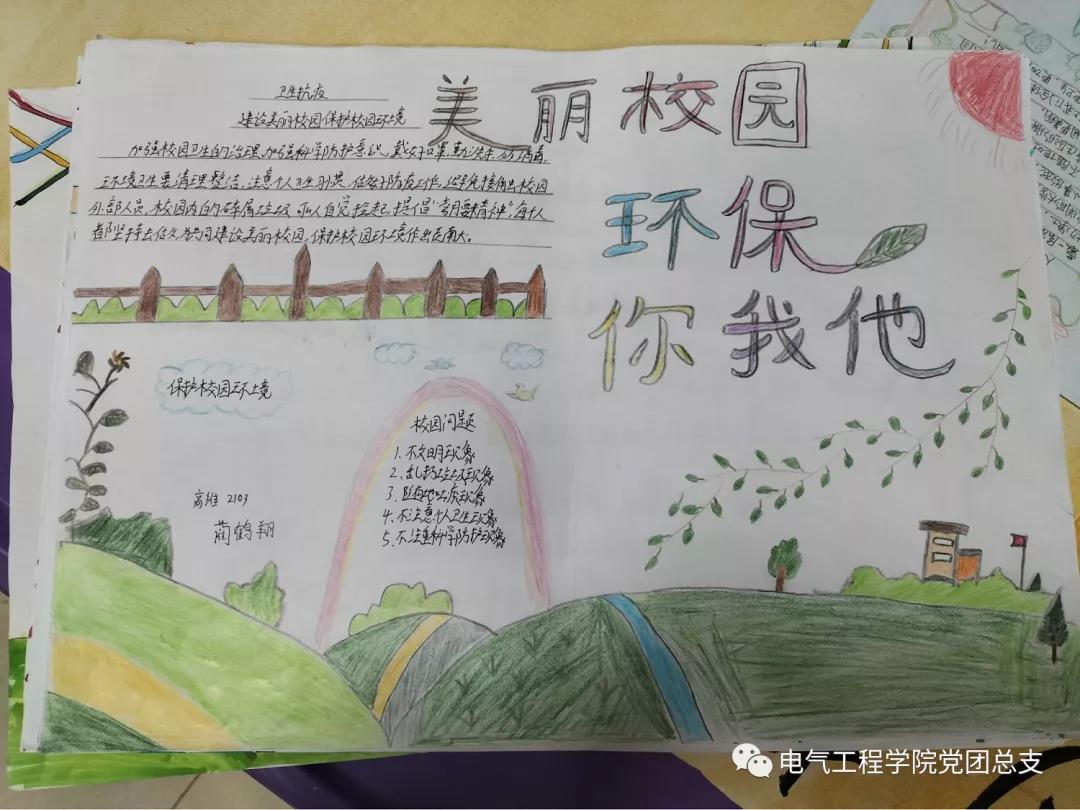 美丽校园
环保
你我他
卫生抗疫
建设美丽校园保护校园环境
加强校园卫生的治理,加强科学防护意识,戴好口罩,勤洗手,防病毒,
环境卫生要清理整洁,注意个人卫生习惯,做好防疫工作,避免接触出校园
外部人员,校园内的碎屑垃圾可以自觉捡起,提倡"弯腰精神",每个人
都坚持去做,共同建设美丽校园,保护校园环境作出贡献。
保护校园环境
校园问题
1.不文明现象
2.乱扔垃圾现象
3.随地吐痰现象
4.不注意个人卫生现象
5.不注重科学防护现象
高维 2103
蔺鹤翔
电气工程学院党团总支